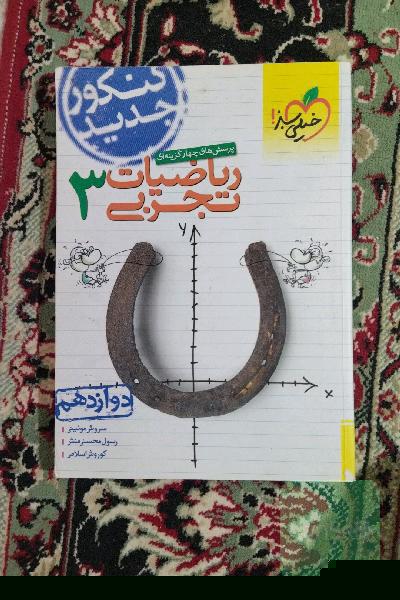 کنکور
جدید
خیلی سبز!
پرسش‌های چهارگزینه‌ای
ریاضیات
تجربی ۳
y
x
دوازدهم
سروش موئینی
رسول محسنی منش
کوروش اسلامی